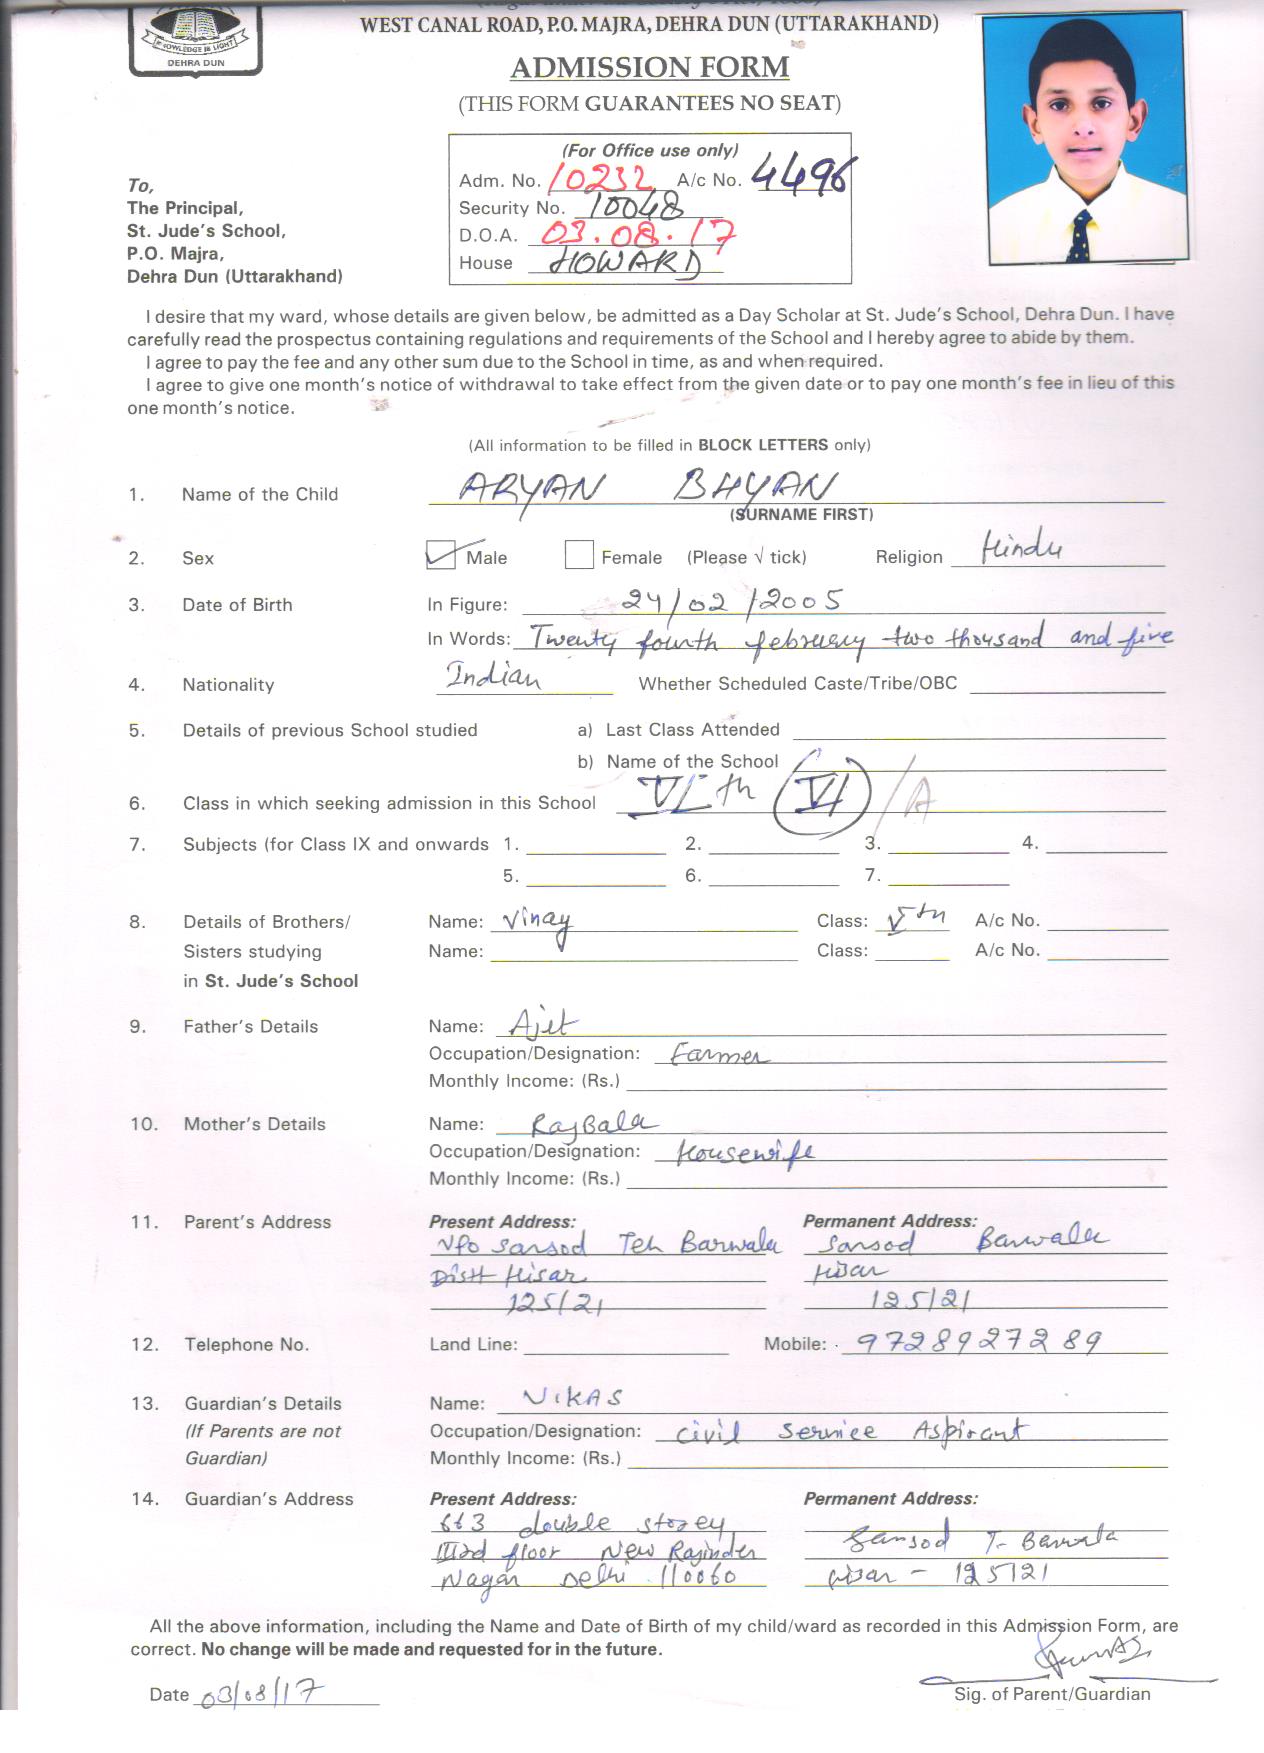 KNOWLEDGE IS LIGHT
DEHRA DUN
WEST CANAL ROAD, P.O. MAJRA, DEHRA DUN (UTTARAKHAND)
ADMISSION FORM
(THIS FORM GUARANTEES NO SEAT)
(For Office use only)
Adm. No. 10232 A/c No. 4496
Security No. 10048
D.O.A. 03.08.17
House HOWARD
To,
The Principal,
St. Jude's School,
P.O. Majra,
Dehra Dun (Uttarakhand)
I desire that my ward, whose details are given below, be admitted as a Day Scholar at St. Jude's School, Dehra Dun. I have
carefully read the prospectus containing regulations and requirements of the School and I hereby agree to abide by them.
I agree to pay the fee and any other sum due to the School in time, as and when required.
I agree to give one month's notice of withdrawal to take effect from the given date or to pay one month's fee in lieu of this
one month's notice.
(All information to be filled in BLOCK LETTERS only)
1. Name of the Child ARYAN BHYAN
(SURNAME FIRST)
2. Sex Male Female (Please √ tick) Religion Hindu
3. Date of Birth In Figure: 24/02/2005
In Words: Twenty fourth february two thousand and five
4. Nationality Indian Whether Scheduled Caste/Tribe/OBC
5. Details of previous School studied a) Last Class Attended
b) Name of the School
6. Class in which seeking admission in this School VIth (VI) /A
7. Subjects (for Class IX and onwards 1. 2. 3. 4.
5. 6. 7.
8. Details of Brothers/ Name: Vinay Class: Vth A/c No.
Sisters studying Name: Class: A/c No.
in St. Jude's School
9. Father's Details Name: Ajit
Occupation/Designation: Farmer
Monthly Income: (Rs.)
10. Mother's Details Name: RajBala
Occupation/Designation: Housewife
Monthly Income: (Rs.)
11. Parent's Address Present Address: Permanent Address:
VPO Sarsod Teh Barwala Sarsod Barwala
Distt Hisar Hisar
125121 125121
12. Telephone No. Land Line: Mobile: 9728927289
13. Guardian's Details Name: VIKAS
(If Parents are not Occupation/Designation: Civil Service Aspirant
Guardian) Monthly Income: (Rs.)
14. Guardian's Address Present Address: Permanent Address:
663 double storey
IIIrd floor New Rajinder Sarsod T- Barwala
Nagar Delhi 110060 Hisar - 125121
All the above information, including the Name and Date of Birth of my child/ward as recorded in this Admission Form, are
correct. No change will be made and requested for in the future.
Date 03/08/17 Sig. of Parent/Guardian